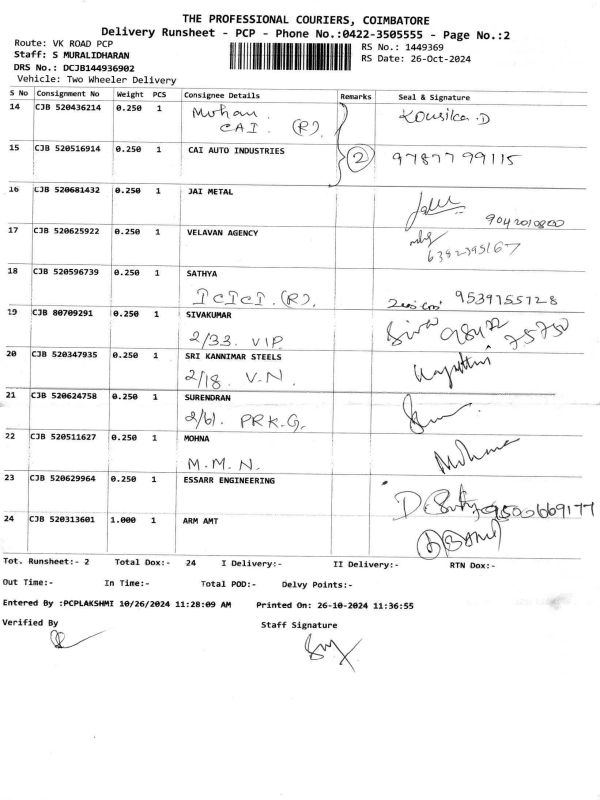 THE PROFESSIONAL COURIERS, COIMBATORE
Delivery Runsheet - PCP - Phone No.:0422-3505555 - Page No.:2
Route: VK ROAD PCP RS No.: 1449369
Staff: S MURALIDHARAN RS Date: 26-Oct-2024
DRS No.: DCJB144936902
Vehicle: Two Wheeler Delivery
S No Consignment No Weight PCS Consignee Details Remarks Seal & Signature
14 CJB 520436214 0.250 1 Mohan. Kousika.D
CAI. (R).
15 CJB 520516914 0.250 1 CAI AUTO INDUSTRIES 2 97877 99115
16 CJB 520681432 0.250 1 JAI METAL
9042010800
17 CJB 520625922 0.250 1 VELAVAN AGENCY
6382395167
18 CJB 520596739 0.250 1 SATHYA
ICICI. (R). 9539755728
19 CJB 80709291 0.250 1 SIVAKUMAR Siva 98422 75750
2/33. VIP
20 CJB 520347935 0.250 1 SRI KANNIMAR STEELS
2/18. V.N.
21 CJB 520624758 0.250 1 SURENDRAN
2/61. PRK.G.
22 CJB 520511627 0.250 1 MOHNA Mohana
M.M.N.
23 CJB 520629964 0.250 1 ESSARR ENGINEERING
9500669177
24 CJB 520313601 1.000 1 ARM AMT
Tot. Runsheet:- 2 Total Dox:- 24 I Delivery:- II Delivery:- RTN Dox:-
Out Time:- In Time:- Total POD:- Delvy Points:-
Entered By :PCPLAKSHMI 10/26/2024 11:28:09 AM Printed On: 26-10-2024 11:36:55
Verified By Staff Signature